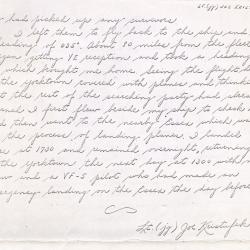 had picked up any survivors
I left them to fly back to the ship and
heading of 035°. About 10 miles from the fleet
began getting YE reception and took a heading
which brought me home. Seeing the flight deck
the Yorktown covered with planes and thinking
that the rest of the searching party had already
landed I first flew beside the ship to check
and then went to the nearby Essex which was
the process of landing planes. I landed
at 1700 and remained overnight, returning
the Yorktown the next day at 1300 with
and a VF-5 pilot who had made an
emergency landing on the Essex the day before
Lt. (jg) Joe